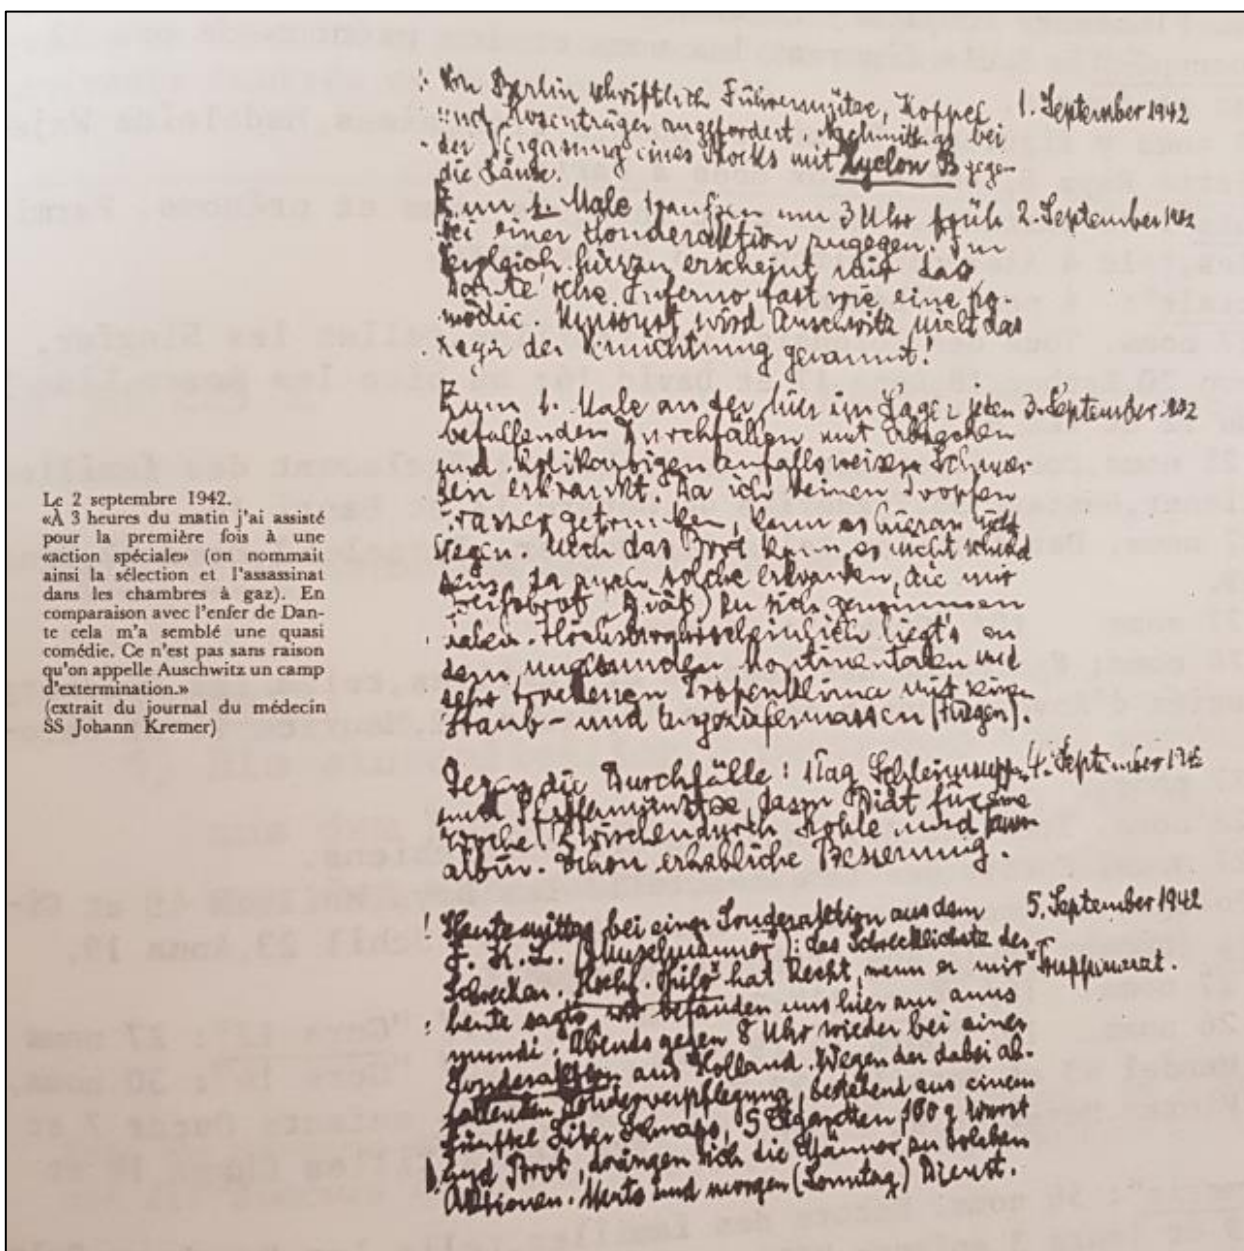 Le 2 septembre 1942.
«À 3 heures du matin j'ai assisté
pour la première fois à une
«action spéciale» (on nommait
ainsi la sélection et l'assassinat
dans les chambres à gaz). En
comparaison avec l'enfer de Dan-
te cela m'a semblé une quasi
comédie. Ce n'est pas sans raison
qu'on appelle Auschwitz un camp
d'extermination.»
(extrait du journal du médecin
SS Johann Kremer)
Von Berlin schriftlich Führermütze, Koppel 1. September 1942
und Hosenträger angefordert. Nachmittags bei
der Vergasung eines Blocks mit Zyclon B gegen
die Läuse.
Zum 1. Male draußen um 3 Uhr früh 2. September 1942
bei einer Sonderaktion zugegen. Im
Vergleich hierzu erscheint mir das
Dante'sche Inferno fast wie eine Ko-
mödie. Umsonst wird Auschwitz nicht das
Lager der Vernichtung genannt!
Zum 1. Male an der hier im Lager jeden 3. September 1942
befallenden Durchfällen mit Erbrechen
und kolikartigen anfallsweisen Schmer-
zen erkrankt. Da ich keinen Tropfen
Wasser getrunken, kann es hieran nicht
liegen. Auch das Brot kann es nicht schuld
sein, da auch solche erkranken, die nur
Weißbrot (Diät) zu sich genommen
haben. Höchstwahrscheinlich liegt's an
dem ungesunden kontinentalen und
sehr trockenen Tropenklima mit seinen
Staub- und Ungeziefermassen (Fliegen).
Gegen die Durchfälle: 1 Tag Schleimsuppen 4. September 1942
und Pfefferminztee, dann Diät für eine
Woche. Zwischendurch Kohle und Tann-
albin. Schon erhebliche Besserung.
Heute mittag bei einer Sonderaktion aus dem 5. September 1942
F.K.L. (Muselmänner): das Schrecklichste der
Schrecken. Hschf. Thilo hat Recht, wenn er mir Truppenarzt.
heute sagte, wir befänden uns hier am anus
mundi. Abends gegen 8 Uhr wieder bei einer
Sonderaktion aus Holland. Wegen der dabei ab-
fallenden Sonderverpflegung, bestehend aus einem
fünftel Liter Schnaps, 5 Zigaretten, 100 g Wurst
und Brot, drängen sich die Männer zu solchen
Aktionen. Heute und morgen (Sonntag) Dienst.